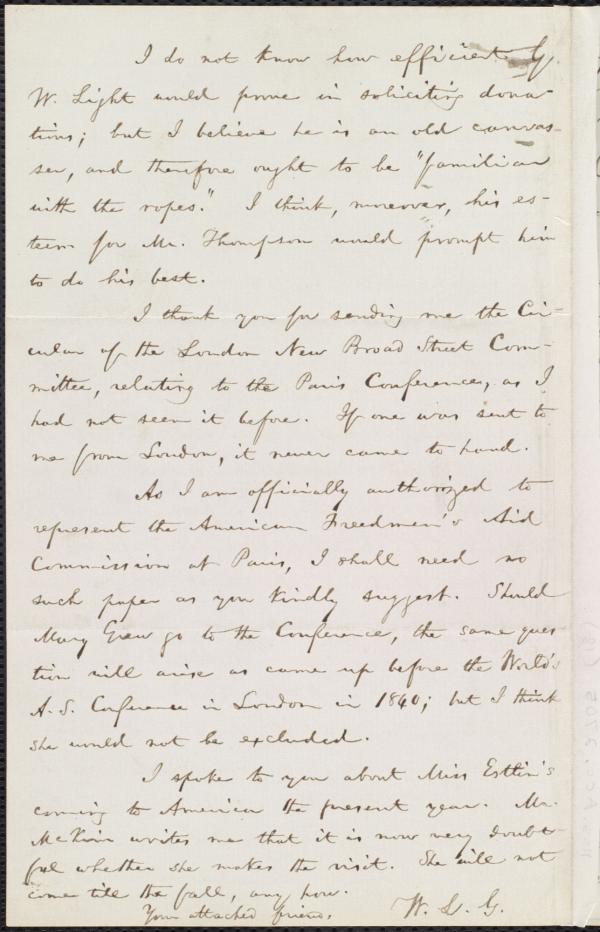 I do not know how efficient G.
W. Light would prove in soliciting dona-
tions; but I believe he is an old canvas-
ser, and therefore ought to be "familiar
with the ropes." I think, moreover, his es-
teem for Mr. Thompson would prompt him
to do his best.
I thank you for sending me the Cir-
cular of the London New Broad Street Com-
mittee, relating to the Paris Conference, as I
had not seen it before. If one was sent to
me from London, it never came to hand.
As I am officially authorized to
represent the American Freedmen's Aid
Commission at Paris, I shall need no
such paper as you kindly suggest. Should
Mary Grew go to the Conference, the same ques
tion will arise as came up before the World's
A. S. Conference in London in 1840; but I think
she would not be excluded.
I spoke to you about Miss Estlin's
coming to America the present year. Mr.
McKim writes me that it is now very doubt-
ful whether she makes the visit. She will not
come till the fall, any how.
Your attached friend,
W. L. G.